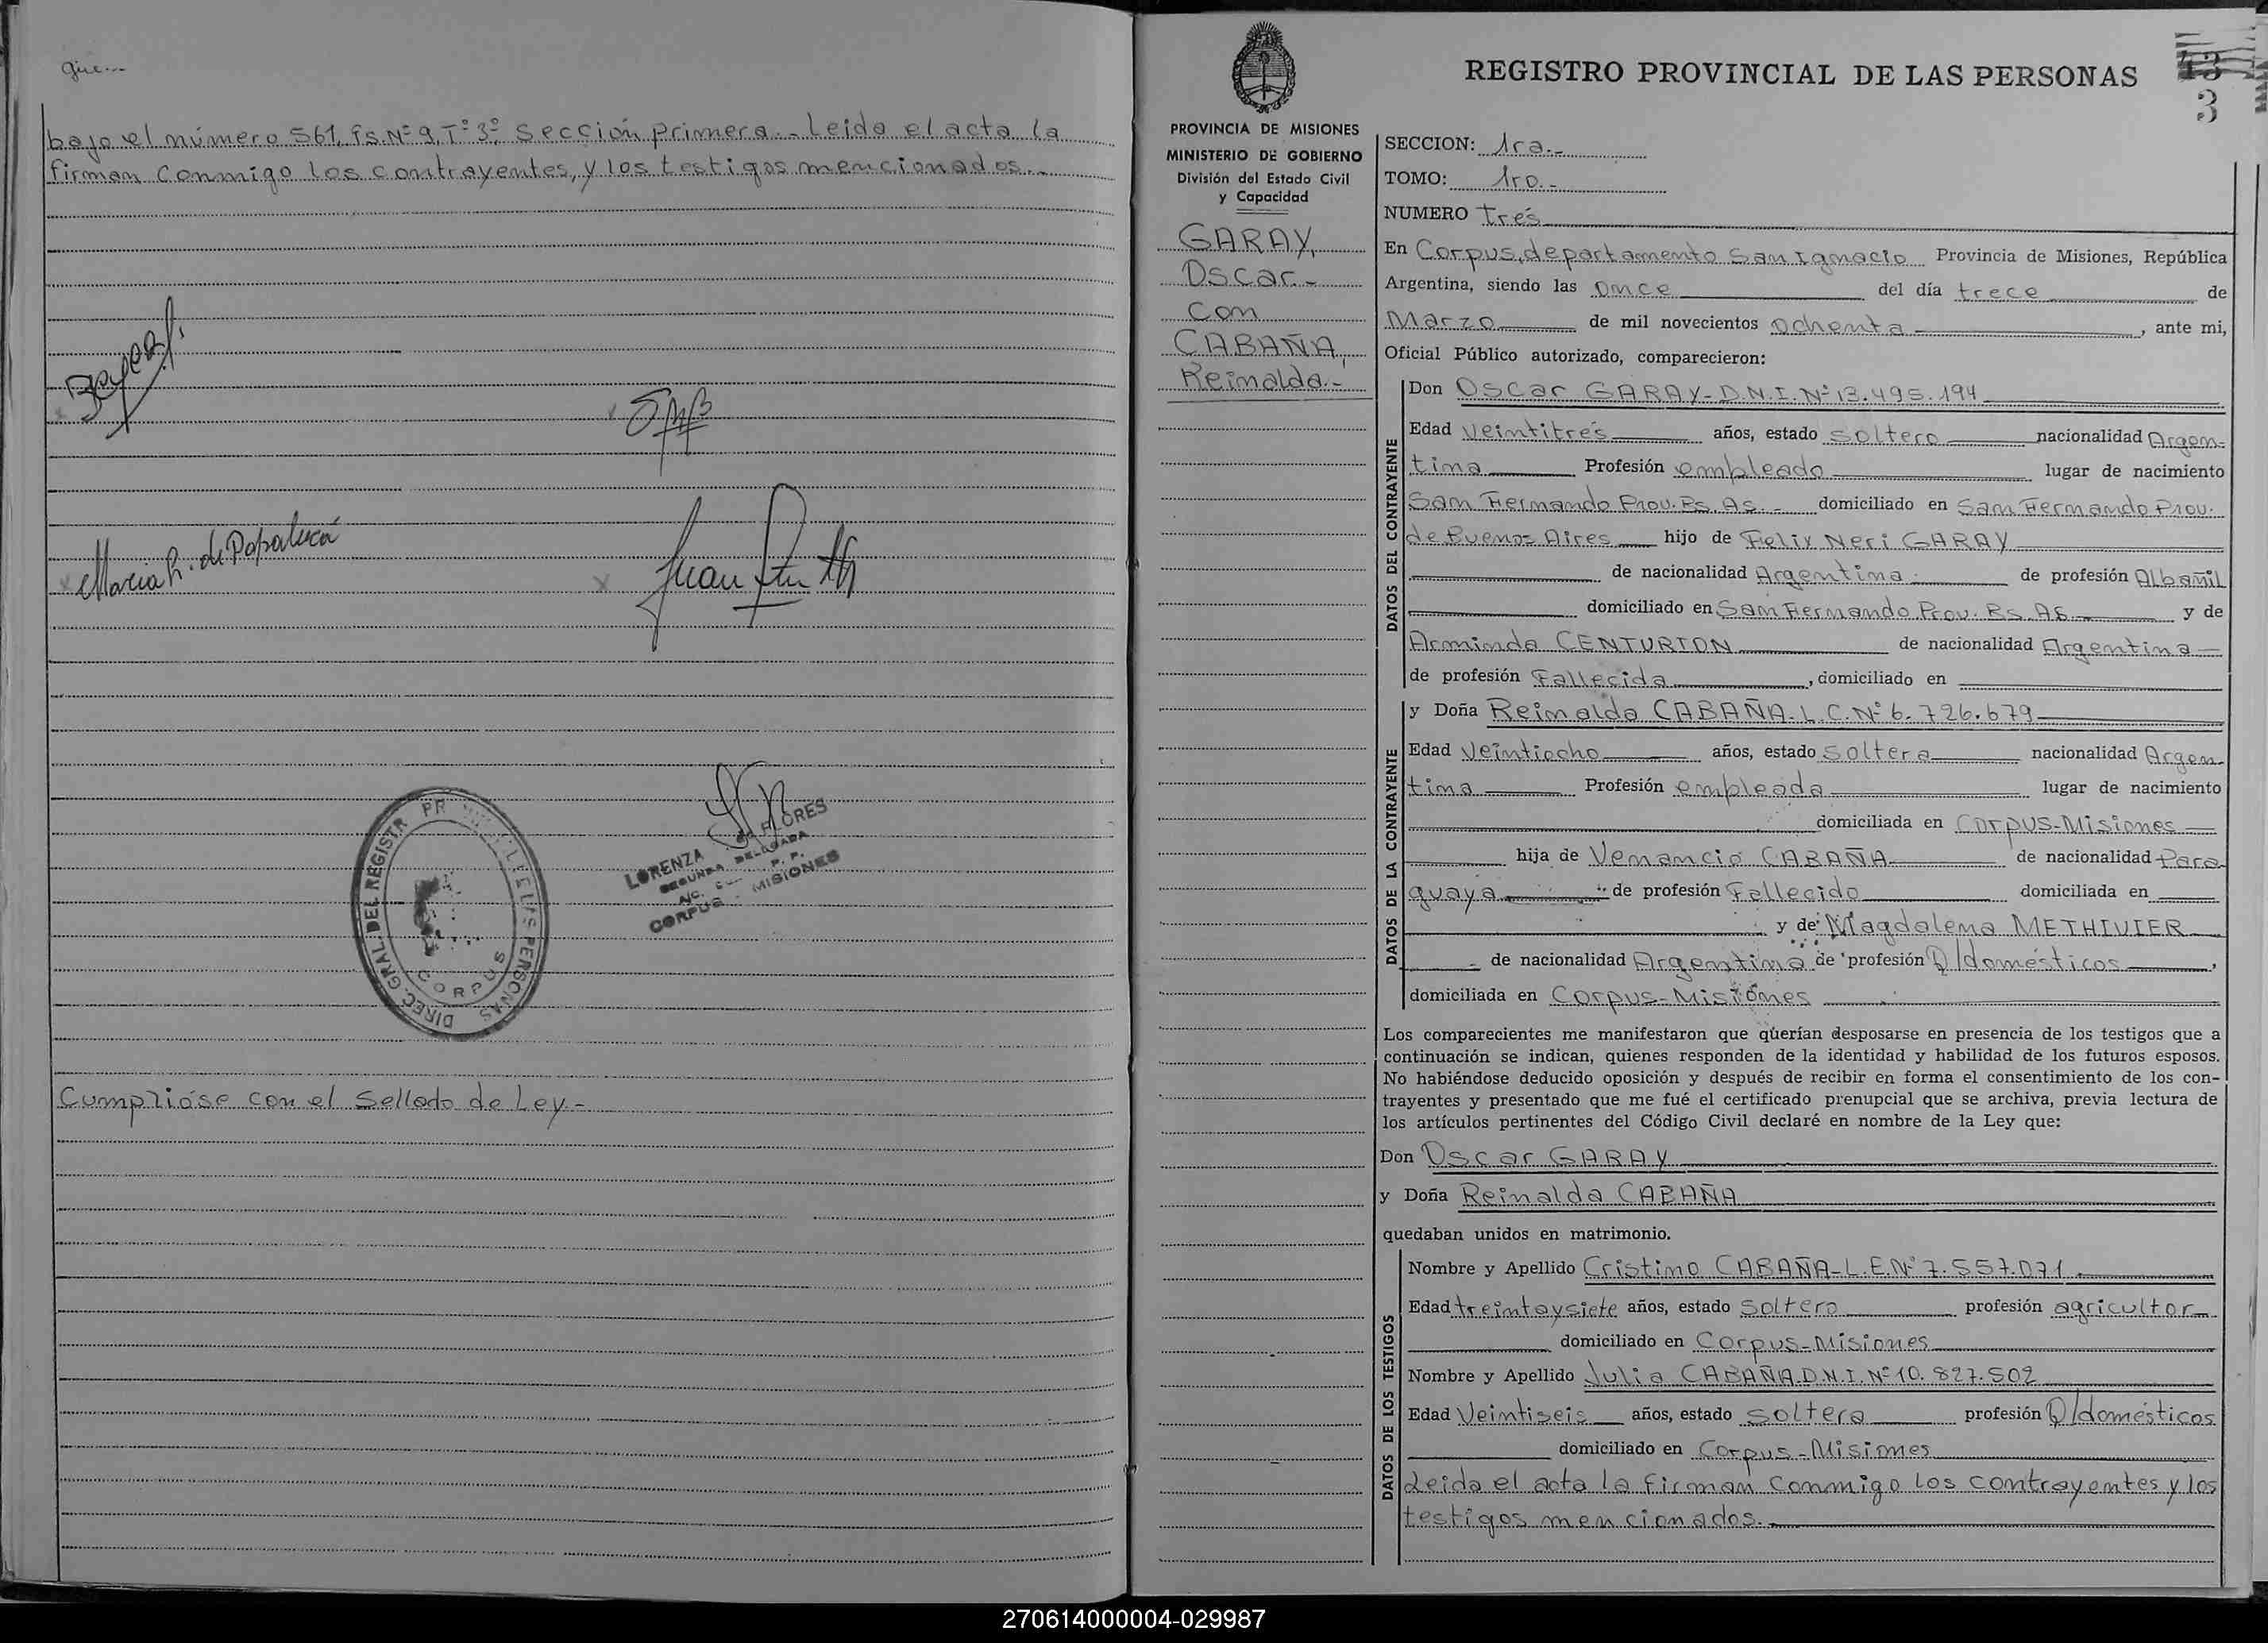 que...
bajo el número 561, fs Nº 9, Tº 3º, Sección primera.- Leida el acta la
firman conmigo los contrayentes, y los testigos mencionados.-
Maria R. de Papaluca
Juan
DIREC. GRAL. DEL REGISTR PR DE LAS PERSONAS
CORPUS
LORENZA de FLORES
SEGUNDA DELEGADA
A/C. R. P. P.
CORPUS - MISIONES
Cumplióse con el Sellado de Ley-
REGISTRO PROVINCIAL DE LAS PERSONAS
43
3
PROVINCIA DE MISIONES
MINISTERIO DE GOBIERNO
División del Estado Civil
y Capacidad
GARAY,
Oscar.-
con
CABAÑA,
Reinalda.-
SECCION: 1ra.-
TOMO: 1ro.-
NUMERO tres
En Corpus, departamento San Ignacio Provincia de Misiones, República
Argentina, siendo las once del día trece de
Marzo de mil novecientos ochenta, ante mi,
Oficial Público autorizado, comparecieron:
DATOS DEL CONTRAYENTE
Don Oscar GARAY-D.N.I.Nº 13.495.194
Edad veintitres años, estado soltero nacionalidad Argen-
tina Profesión empleado lugar de nacimiento
San Fernando Prov. Bs. As.- domiciliado en San Fernando Prov.
de Buenos Aires hijo de Felix Neri GARAY
de nacionalidad Argentina de profesión Albañil
domiciliado en San Fernando Prov. Bs. As. y de
Arminda CENTURION de nacionalidad Argentina
de profesión Fallecida, domiciliado en
DATOS DE LA CONTRAYENTE
y Doña Reinalda CABAÑA-L.C.Nº 6.726.679
Edad veintiocho años, estado soltera nacionalidad Argen-
tina Profesión empleada lugar de nacimiento
domiciliada en Corpus-Misiones
hija de Venancio CABAÑA de nacionalidad Para-
guaya de profesión Fallecido domiciliada en
y de Magdalena METHIVIER
de nacionalidad Argentina de profesión Q/domésticos,
domiciliada en Corpus-Misiones
Los comparecientes me manifestaron que querían desposarse en presencia de los testigos que a
continuación se indican, quienes responden de la identidad y habilidad de los futuros esposos.
No habiéndose deducido oposición y después de recibir en forma el consentimiento de los con-
trayentes y presentado que me fué el certificado prenupcial que se archiva, previa lectura de
los artículos pertinentes del Código Civil declaré en nombre de la Ley que:
Don Oscar GARAY
y Doña Reinalda CABAÑA
quedaban unidos en matrimonio.
DATOS DE LOS TESTIGOS
Nombre y Apellido Cristino CABAÑA-L.E.Nº 7.557.071
Edad treintaysiete años, estado soltero profesión agricultor
domiciliado en Corpus-Misiones
Nombre y Apellido Julia CABAÑA.D.N.I.Nº 10.827.502
Edad Veintiseis años, estado soltera profesión Q/domésticos
domiciliado en Corpus-Misiones
Leida el acta la firman conmigo los contrayentes y los
testigos mencionados.-
270614000004-029987